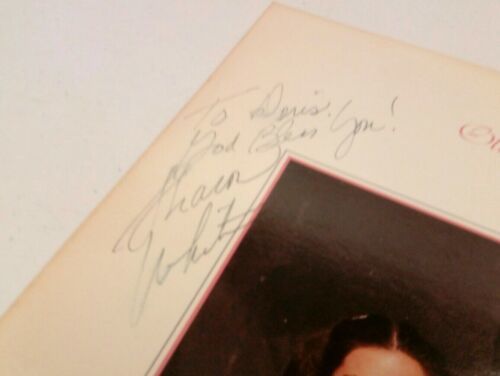 To Doris.
God Bless You!
Sharon
White